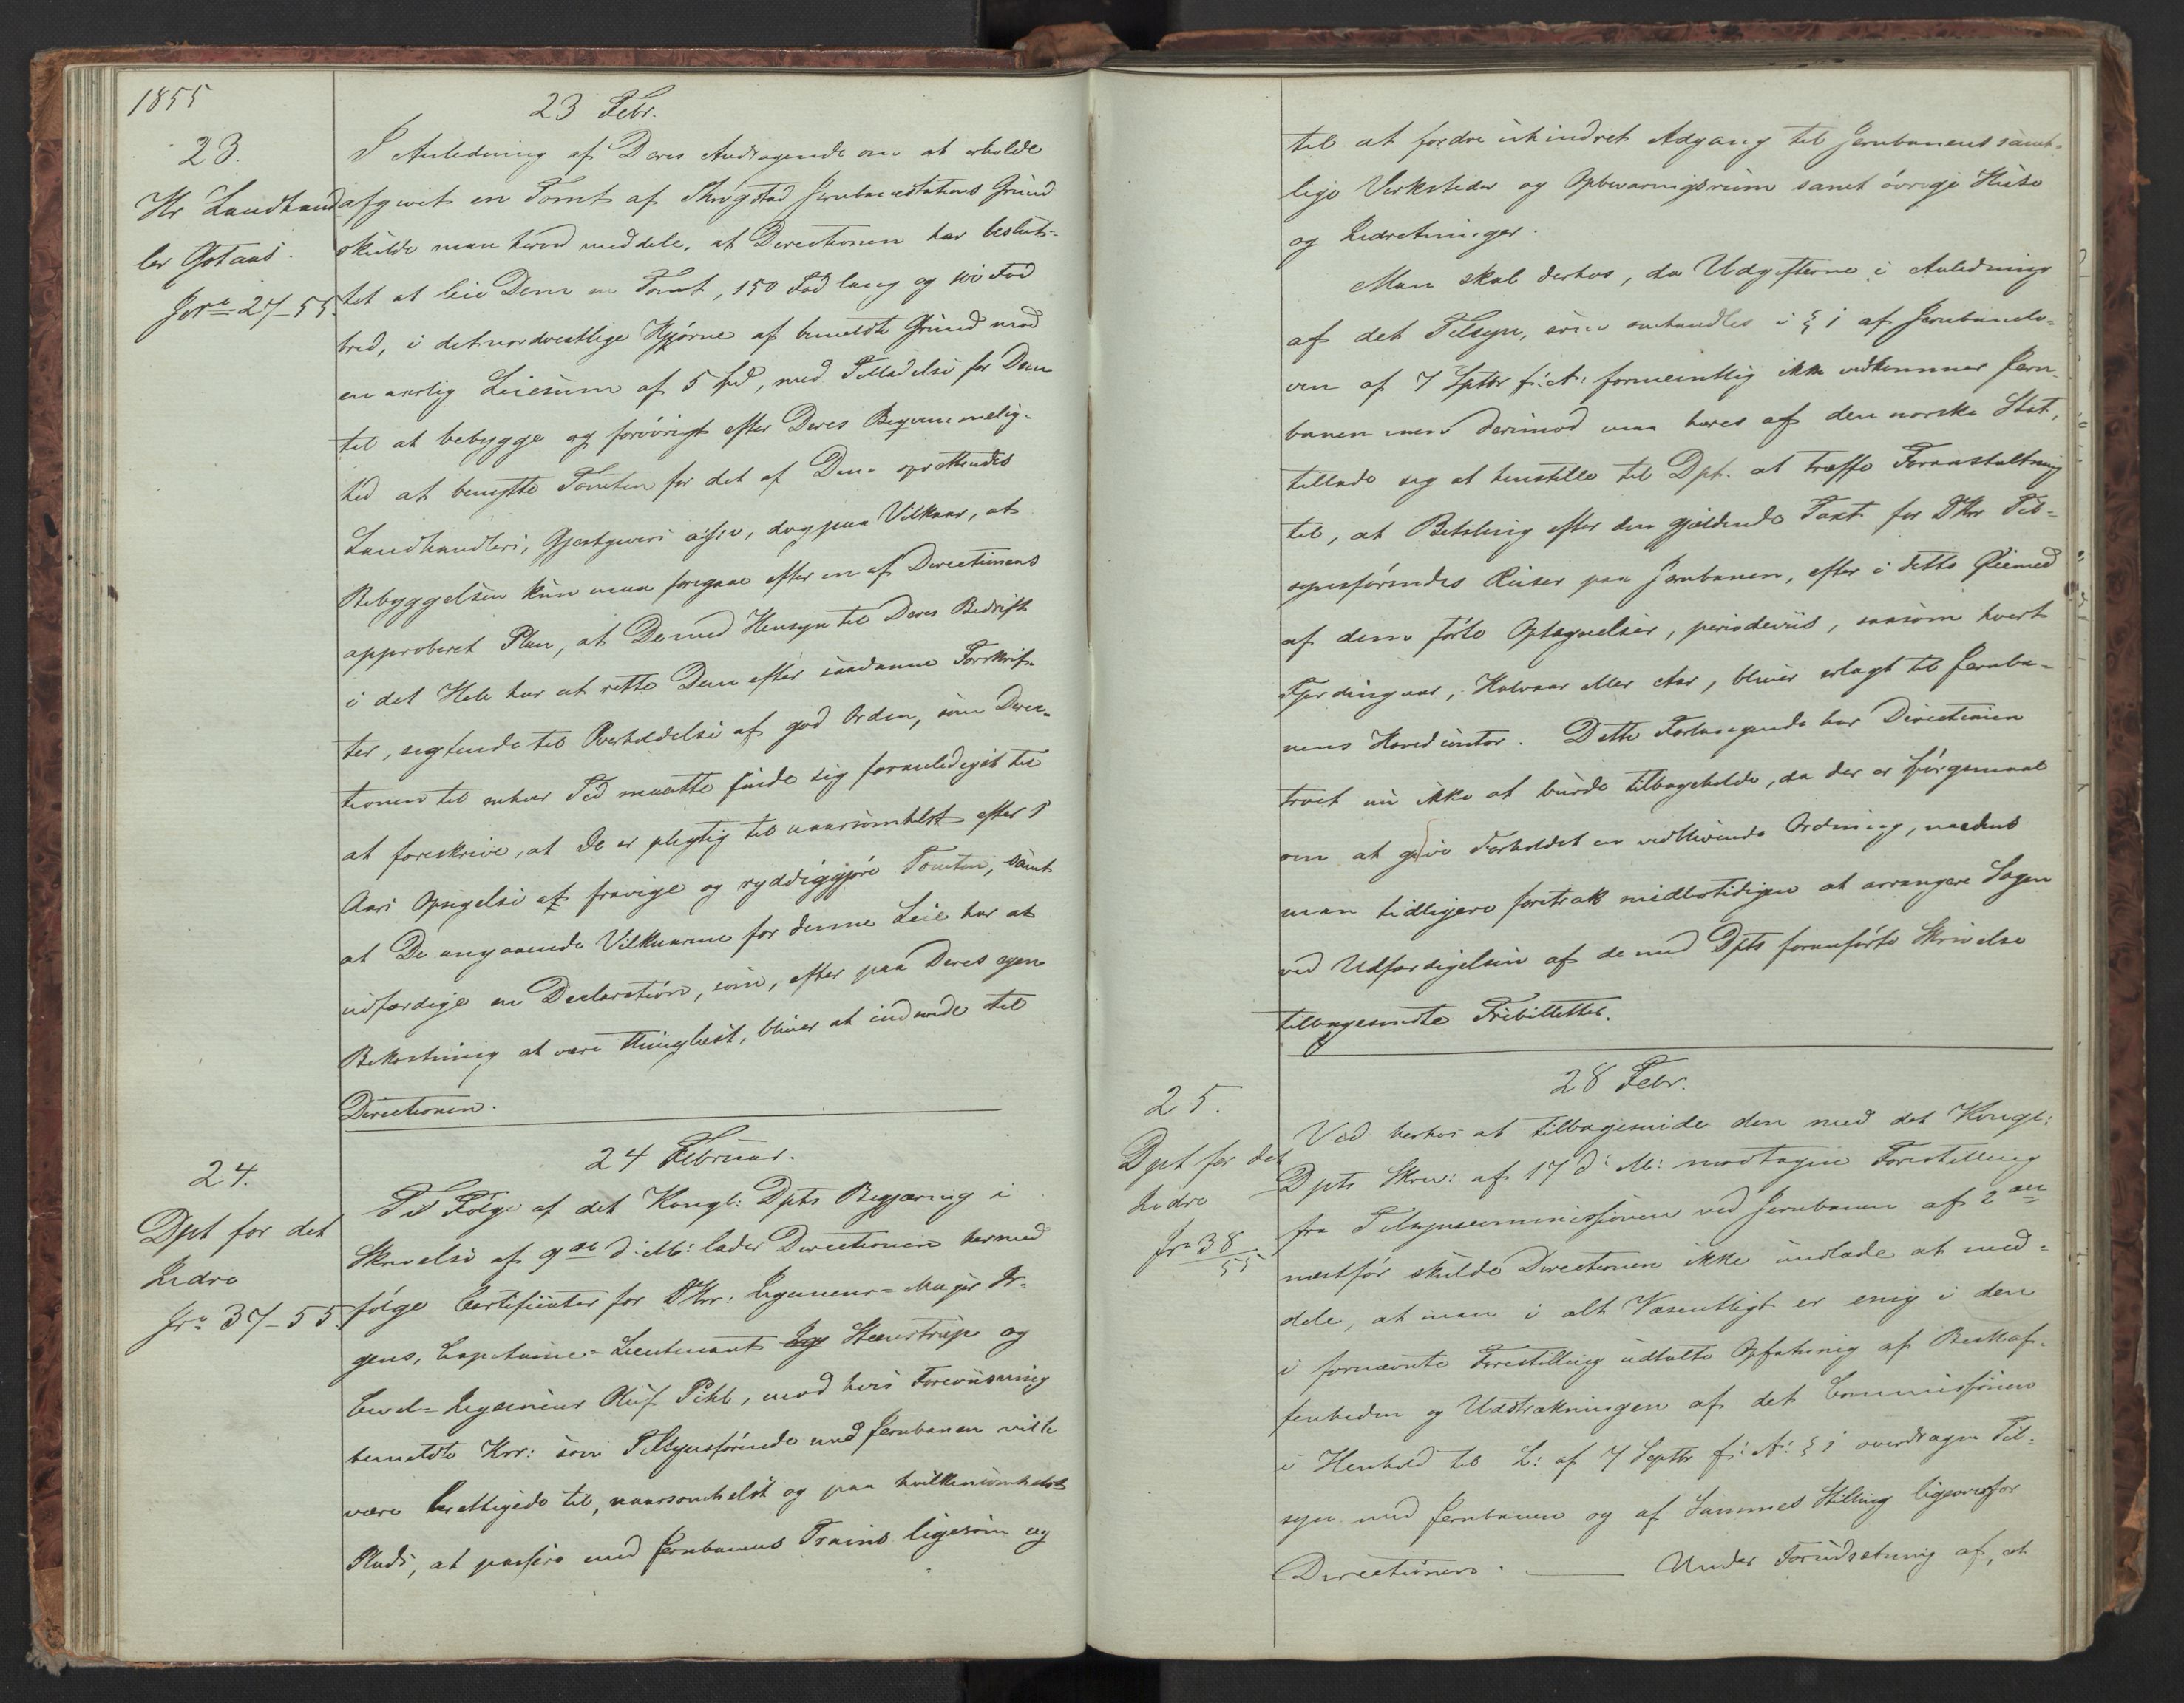 1855
23 Febr.
23.
Hr Landhand
ler Gotaas.
Jnr 27-55.
I Anledning af Deres Andragende om at erholde
afgivet en Tomt af Skrogstad Jernbanestations Grund
skulde man herved meddele, at Directionen har beslut-
tet at leie Dem en Tomt, 150 Fod lang og 100 Fod
bred, i det nordvestlige Hjørne af bemeldte Grund mod
en aarlig Leiesum af 5 Spd, med Tilladelse for Dem
til at bebygge og forøvrigt efter Deres Beqvemmelig-
hed at benytte Tomten for det af Dem oprettendes
Landhandleri, Gjestgiveri &c., dog paa Vilkaar, at
Bebyggelsen kun maa foregaae efter en af Directionens
approberet Plan, at De med Hensyn til Deres Bedrift
i det Hele har at rette Dem efter saadanne Forskrif-
ter, sigtende til Overholdelse af god Orden, som Direc-
tionen til enhver Tid maatte finde sig foranlediget til
at foreskrive, at De er pligtig til naarsomhelst efter 1
Aars Opsigelse at fravige og ryddiggjøre Tomten, samt
at De angaaende Vilkaarene for denne Leie har at
udfærdige en Declaration, som, efter paa Deres egen
Bekostning at være thinglæst, bliver at indsende til
Directionen.
24 Februar.
24.
Dpt for det
Indre
Jnr 37-55.
Til Følge af det Kongl: Dpts Begjæring i
Skrivelse af 9de d: M: lader Directionen hermed
følge Certificater for DHrr: Ingenieur-Major Ir-
gens, Capitaine-Lieutenant Ing Steenstrup og
Civil-Ingenieur Oluf Pihl, mod hvis Foreviisning
bemeldte Hrr: som Tilsynsførende med Jernbanen ville
være berettigede til, naarsomhelst og paa hvilkensomhelst
Plads, at passere med Jernbanens Trains ligesom og
til at fordre uhindret Adgang til Jernbanens samt-
lige Verksteder og Opbevaringsrum samt øvrige Huse
og Indretninger.
Man skal derhos, da Udgifterne i Anledning
af det Tilsyn, som omhandles i § 1 af Jernbanelo-
ven af 7 Septbr f: A: formeentlig ikke vedkommer Jern-
banen men derimod maa bæres af den norske Stat,
tillade sig at henstille til Dpt. at træffe Foranstaltning
til, at Betaling efter den gjældende Taxt for DHrr Til-
synsførendes Reiser paa Jernbanen, efter i dette Øiemed
af dem førte Optegnelser, periodeviis, saasom hvert
Fjerdingaar, Halvaar eller Aar, bliver erlagt til Jernba-
nens Hovedcontor. Dette Forlangende har Directionen
troet nu ikke at burde tilbageholde, da der er Spørgsmaal
om at give Forholdet en vedblivende Ordning, medens
man tidligere foretrak midlertidigen at arrangere Sagen
ved Udfærdigelsen af de med Dpts foranførte Skrivelse
tilbagesendte Fribilletter.
28 Febr.
25.
Dpt for det
Indre
Jnr 38/55
Ved herhos at tilbagesende den med det Kongl:
Dpts Skriv: af 17 d: M: modtagne Forestilling
fra Tilsynscommissionen ved Jernbanen af 2den
næstfør skulde Directionen ikke undlade at med-
dele, at man i alt Væsentligt er enig i den
i fornævnte Forestilling udtalte Opfatning af Beskaf-
fenheden og Udstrækningen af det Commissionen
i Henhold til L: af 7 Septbr f: A: § 1 overdragne Til-
syn med Jernbanen og af Sammes Stilling ligeoverfor
Directionen. — Under Forudsætning af, at